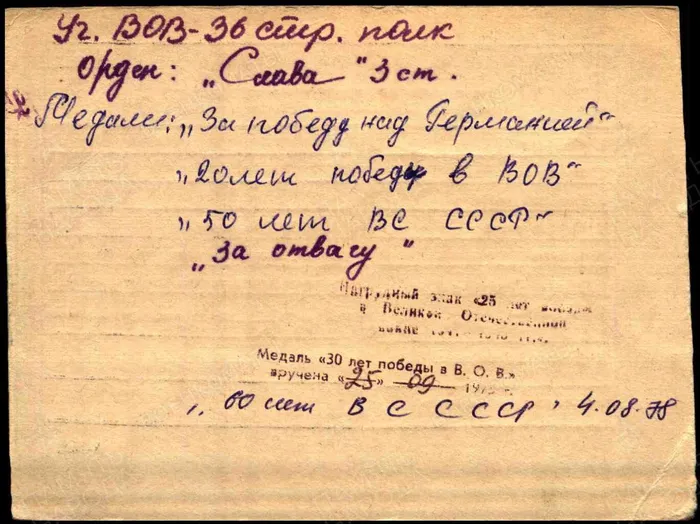 Уч. ВОВ-36 стр. полк
Орден: „Слава" 3 ст.
Медали: „За победу над Германией"
„20 лет победы в ВОВ"
„50 лет ВС СССР"
„За отвагу"
Нагрудный знак «25 лет победы
в Великой Отечественной
войне 1941-1945 гг.»
Медаль «30 лет победы в В. О. В.»
вручена «25» 09 1975 г.
„60 лет ВС СССР, 4.08.78